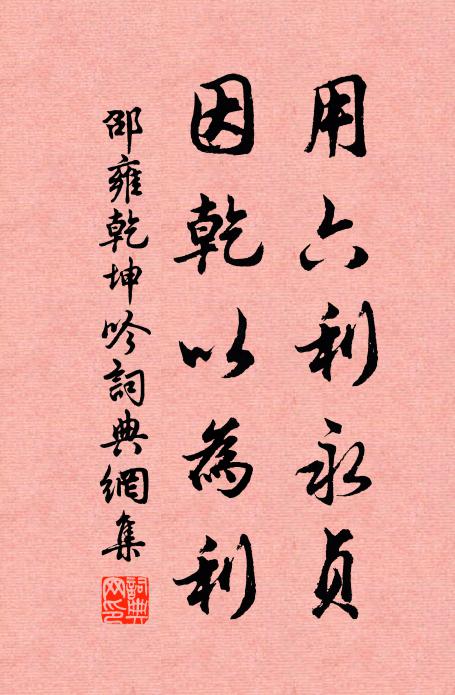 用六利永貞
因乾以為利
邵雍乾坤吟詞典網集
詞典網印